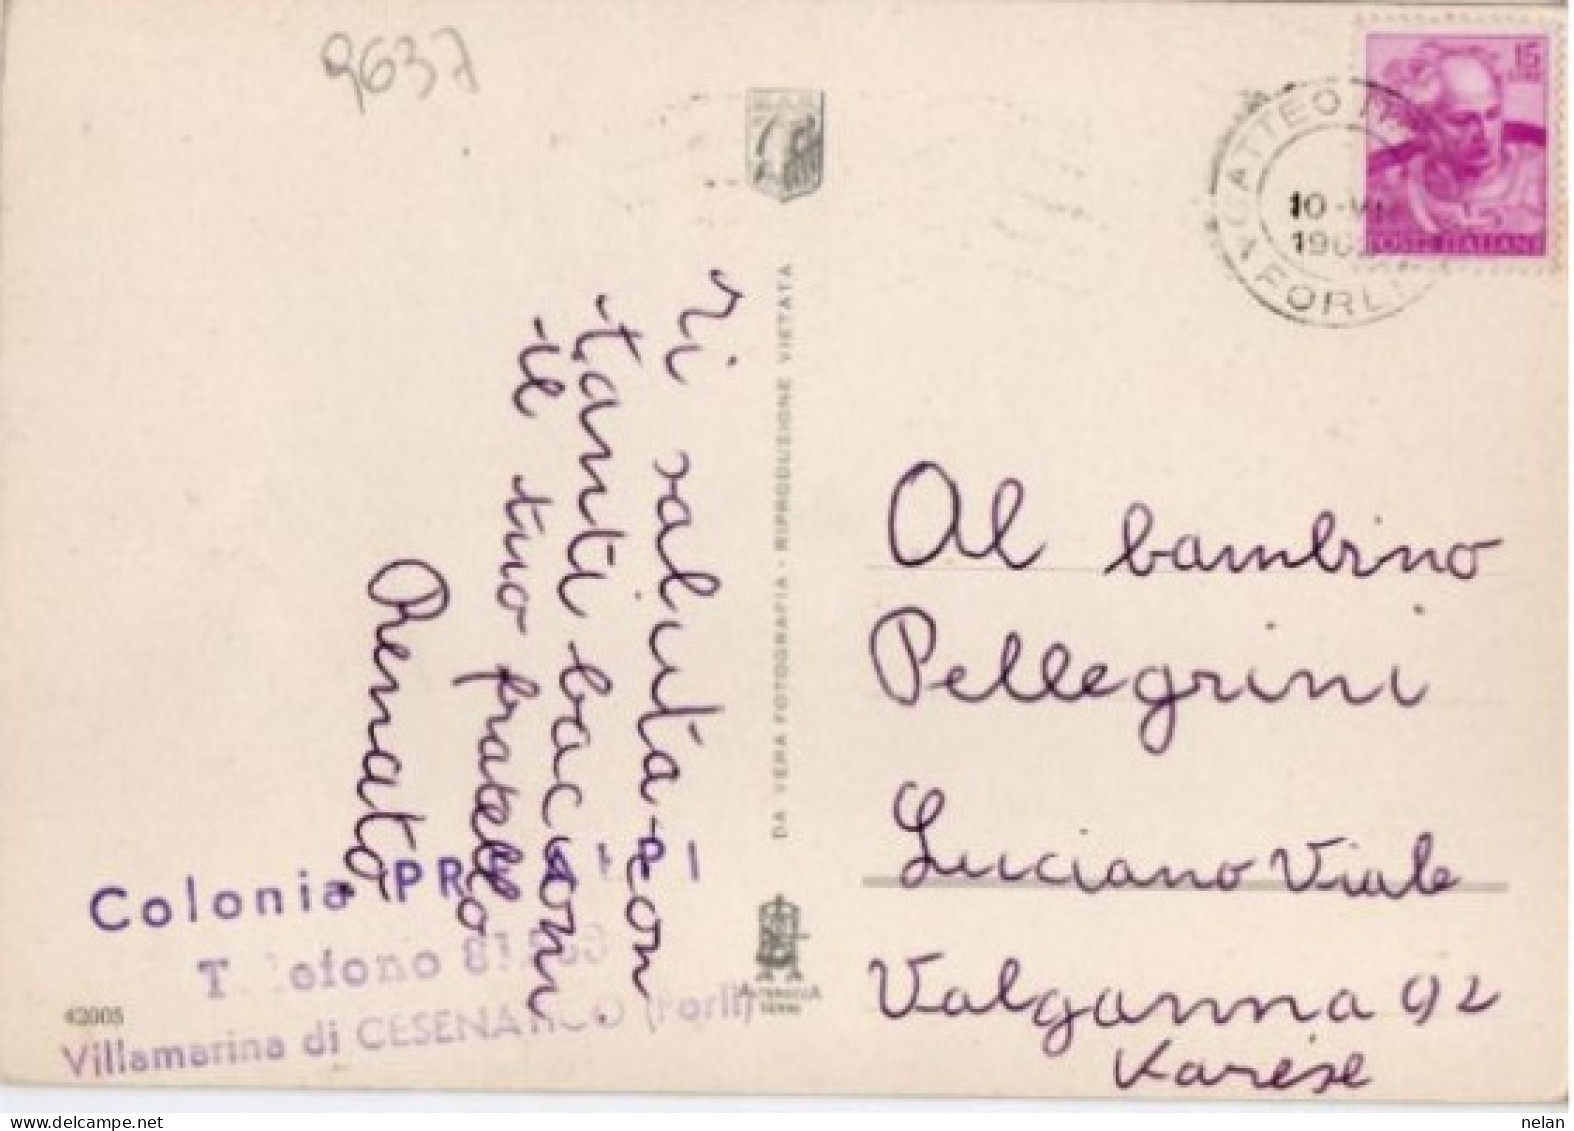 9637
15
LIRE
POSTE ITALIANE
GATTEO
10-VII
FORLI
DA VERA FOTOGRAFIA - RIPRODUZIONE VIETATA
Ti saluta con
tanti bacioni
il tuo fratello
Renato
Al bambino
Pellegrini
Luciano Viale
Valganna 92
Varese
Colonia
Telefono
Villamarina di CESENATICO (Forlì)
42005
ALTEROCCA
TERNI
nelan